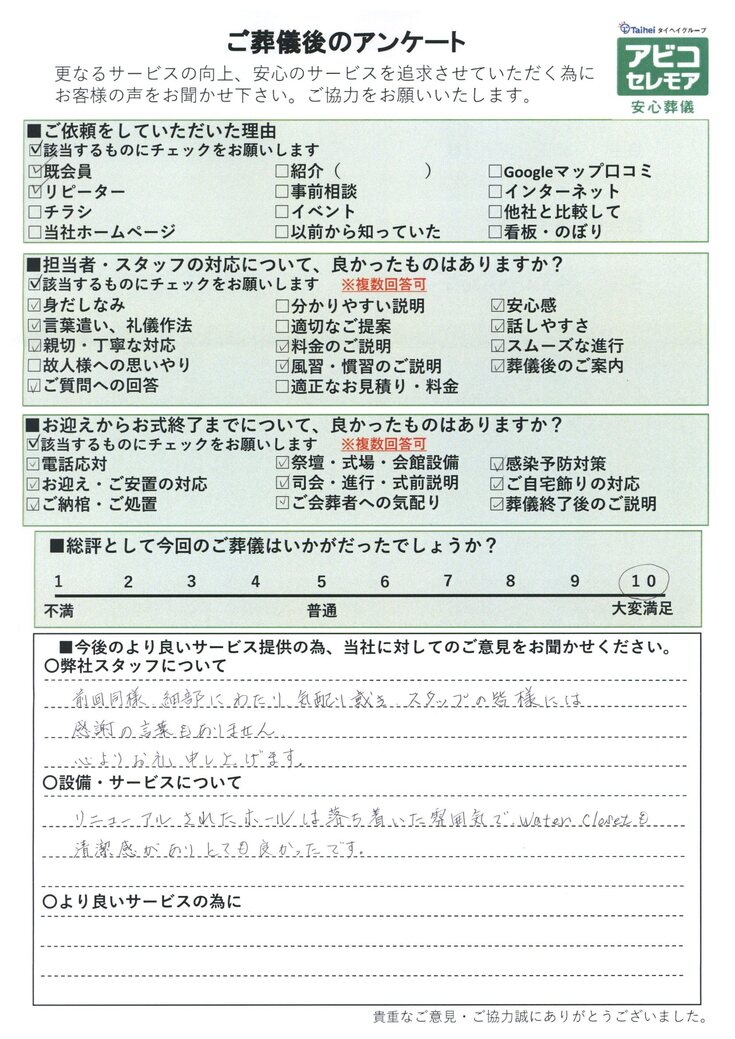 ご葬儀後のアンケート
Taihei タイヘイグループ
アビコ
セレモア
安心葬儀
更なるサービスの向上、安心のサービスを追求させていただく為に
お客様の声をお聞かせ下さい。ご協力をお願いいたします。
■ご依頼をしていただいた理由
☑該当するものにチェックをお願いします
☑既会員 □紹介（　　　　） □Googleマップ口コミ
☑リピーター □事前相談 □インターネット
□チラシ □イベント □他社と比較して
□当社ホームページ □以前から知っていた □看板・のぼり
■担当者・スタッフの対応について、良かったものはありますか？
☑該当するものにチェックをお願いします ※複数回答可
☑身だしなみ □分かりやすい説明 ☑安心感
☑言葉遣い、礼儀作法 □適切なご提案 ☑話しやすさ
☑親切・丁寧な対応 ☑料金のご説明 ☑スムーズな進行
□故人様への思いやり ☑風習・慣習のご説明 ☑葬儀後のご案内
☑ご質問への回答 □適正なお見積り・料金
■お迎えからお式終了までについて、良かったものはありますか？
☑該当するものにチェックをお願いします ※複数回答可
☑電話応対 ☑祭壇・式場・会館設備 ☑感染予防対策
☑お迎え・ご安置の対応 ☑司会・進行・式前説明 ☑ご自宅飾りの対応
☑ご納棺・ご処置 ☑ご会葬者への気配り ☑葬儀終了後のご説明
■総評として今回のご葬儀はいかがだったでしょうか？
1 2 3 4 5 6 7 8 9 10
不満 普通 大変満足
■今後のより良いサービス提供の為、当社に対してのご意見をお聞かせください。
〇弊社スタッフについて
前回同様、細部にわたり、気配り戴き、スタッフの皆様には
感謝の言葉もありません。
心よりお礼申し上げます。
〇設備・サービスについて
リニューアルされたホールは落ち着いた雰囲気で、Water Closetも
清潔感がありとても良かったです。
〇より良いサービスの為に
貴重なご意見・ご協力誠にありがとうございました。